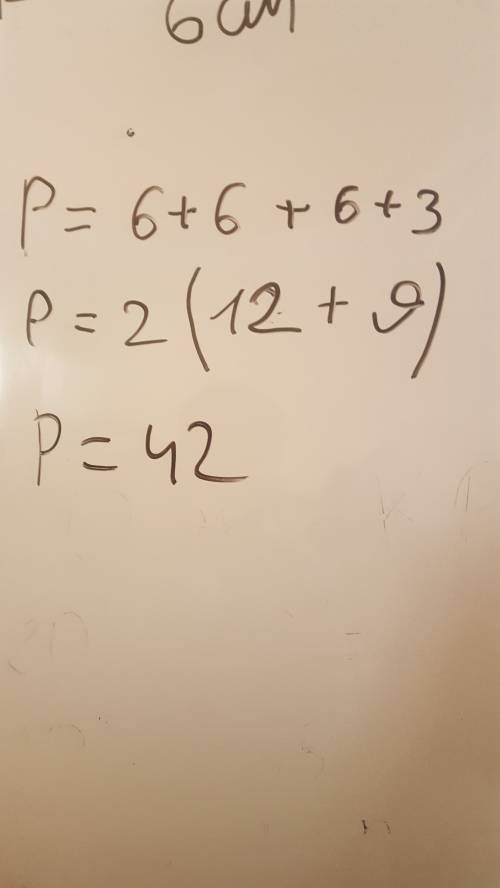 6 cm
P = 6 + 6 + 6 + 3
P = 2 (12 + 9)
P = 42